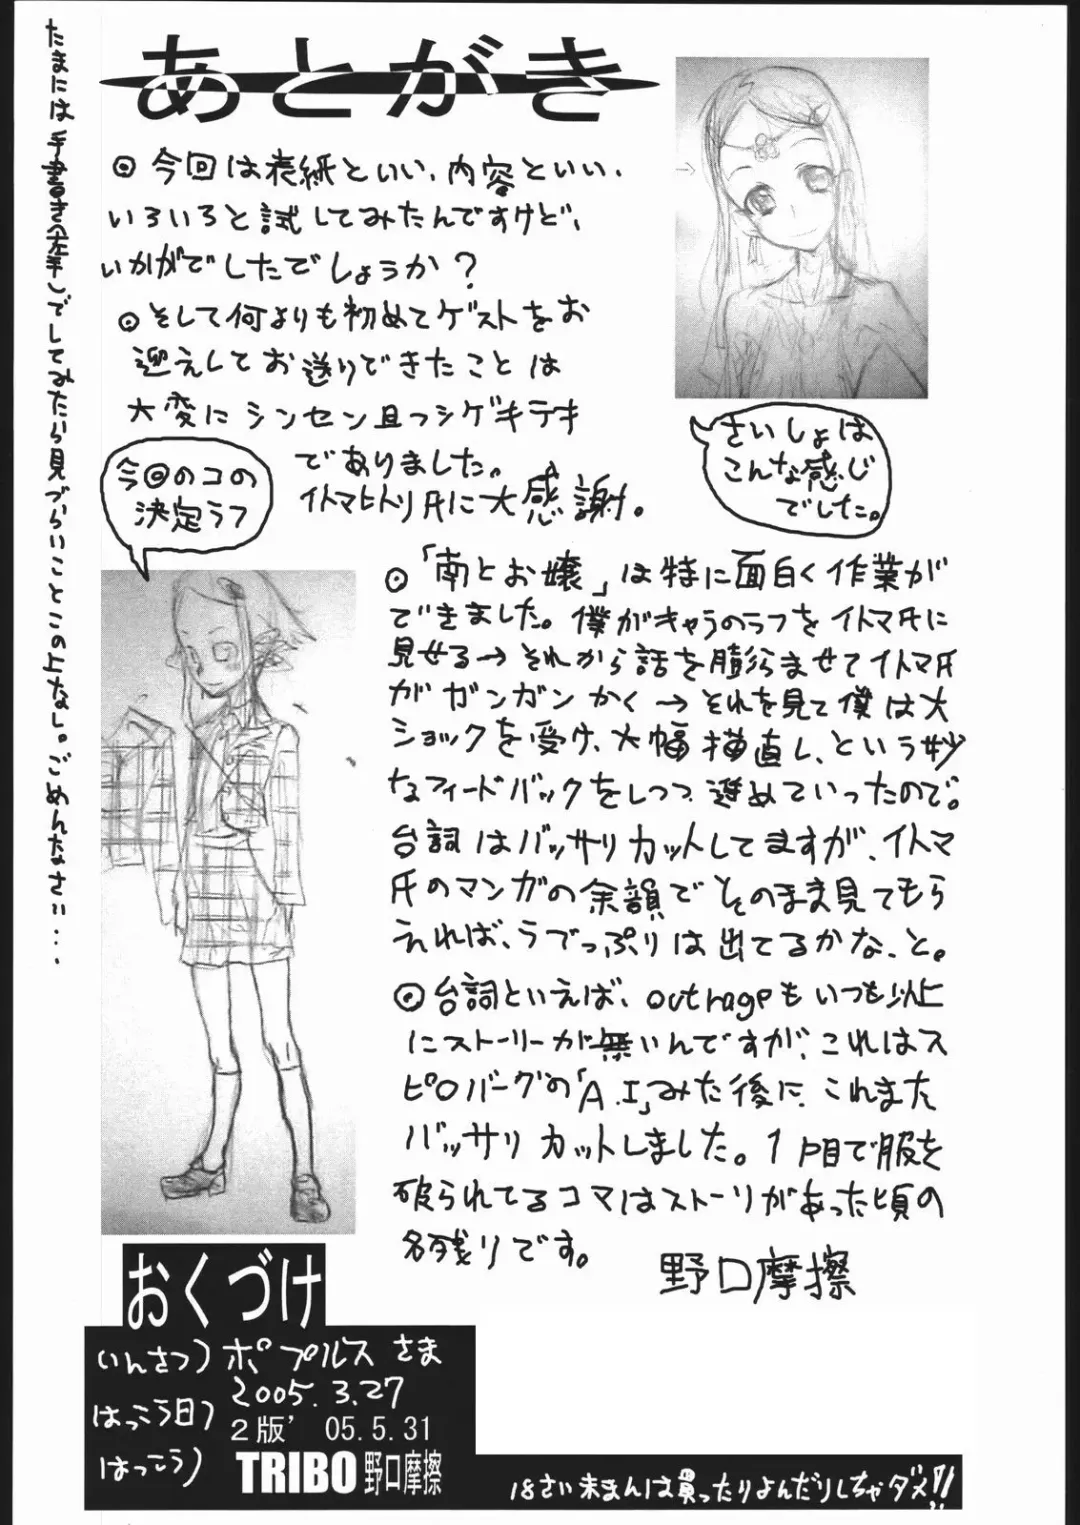 あとがき
◎今回は表紙といい、内容といい、
いろいろと試してみたんですけど、
いかがでしたでしょうか？
◎そして何よりも初めてゲストをお
迎えしてお送りできたことは
大変にシンセン且つシゲキテキ
でありました。
イトマヒトリ氏に大感謝。
さいしょは
こんな感じ
でした。
今回のコの
決定ラフ
◎「南とお嬢」は特に面白く作業が
できました。僕がキャラのラフをイトマ氏に
見せる→それから話を膨らませてイトマ氏
がガンガンかく→それを見て僕は大
ショックを受け、大幅描直し、という妙
なフィードバックをしつつ進めていったので。
台詞はバッサリカットしてますが、イトマ
氏のマンガの余韻でそのまま見てもら
えれば、らぶでっぷりは出てるかな、と。
◎台詞といえば、outrageもいつも以上
にストーリーが無いんですが、これはス
ピルバーグの「A.I」みた後に、これまた
バッサリカットしました。1P目で服を
破られてるコマはストーリがあった頃の
名残りです。
野口摩擦
たまには手書き(左手)でしてみたら見づらいことこの上なし。ごめんなさい...
おくづけ
(いんさつ) ポプルスさま
(はっこう日) 2005.3.27
2版' 05.5.31
(はっこう) TRIBO野口摩擦
18さい未まんは買ったりよんだりしちゃダメ!!